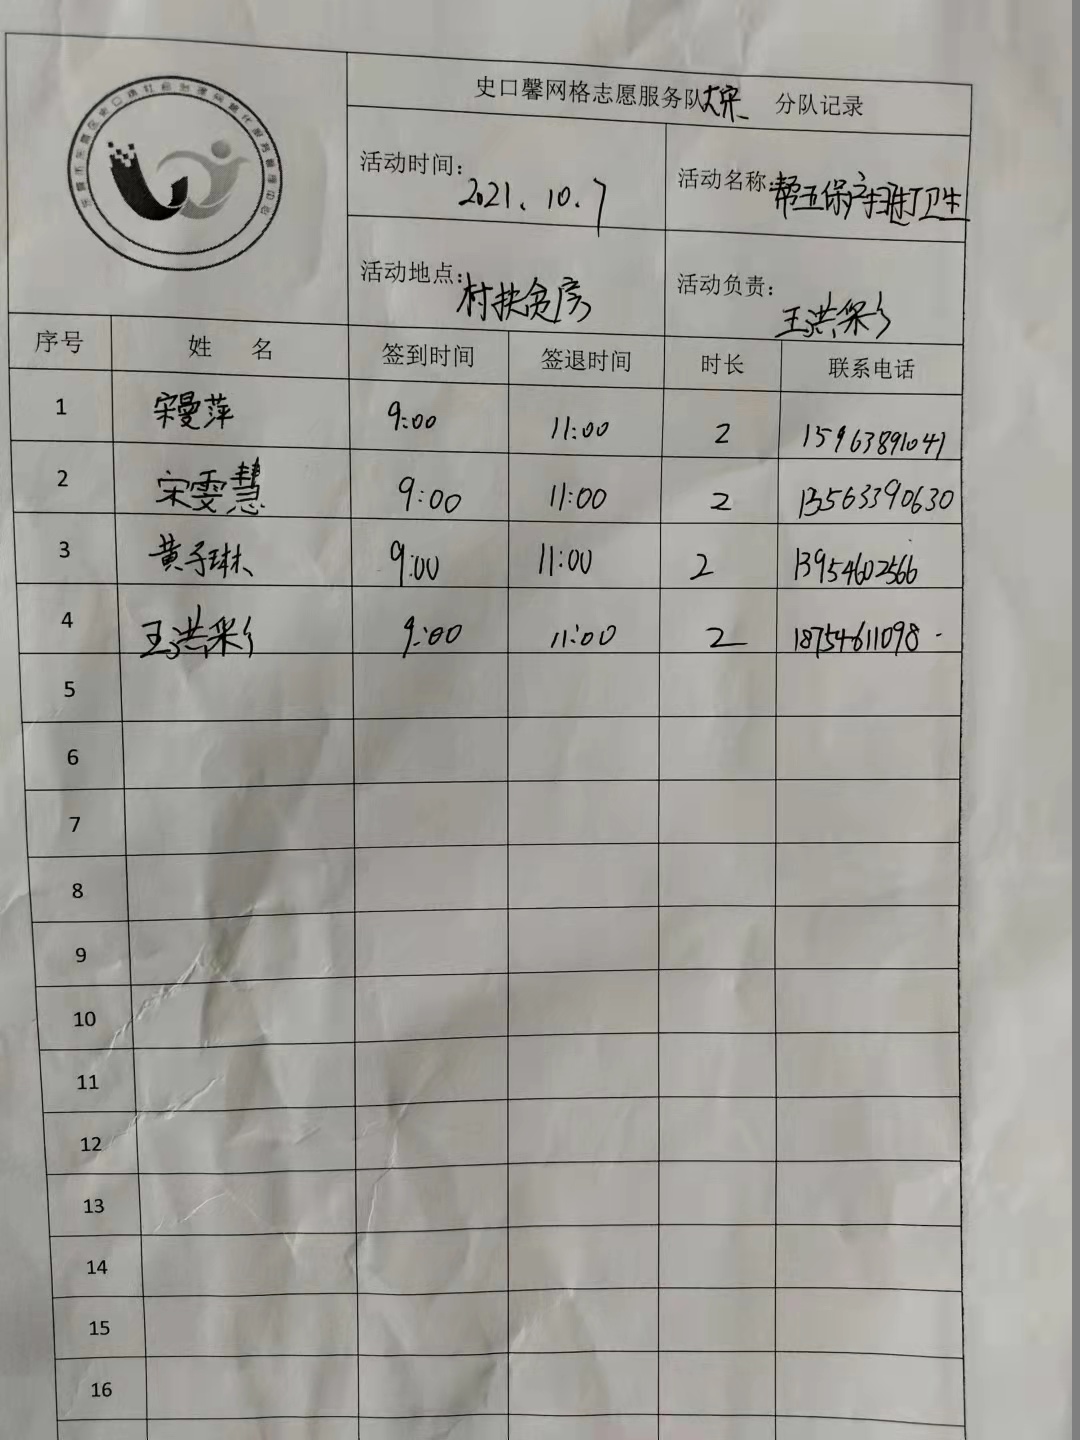 史口馨网格志愿服务队大宋 分队记录
活动时间：2021.10.7
活动名称：帮五保户打卫生
活动地点：村扶贫房
活动负责：王洪彩
序号 姓 名 签到时间 签退时间 时长 联系电话
1 宋曼萍 9:00 11:00 2 15963891041
2 宋雯慧 9:00 11:00 2 13563390630
3 黄子琳 9:00 11:00 2 13954602566
4 王洪彩 9:00 11:00 2 18754611098
5
6
7
8
9
10
11
12
13
14
15
16